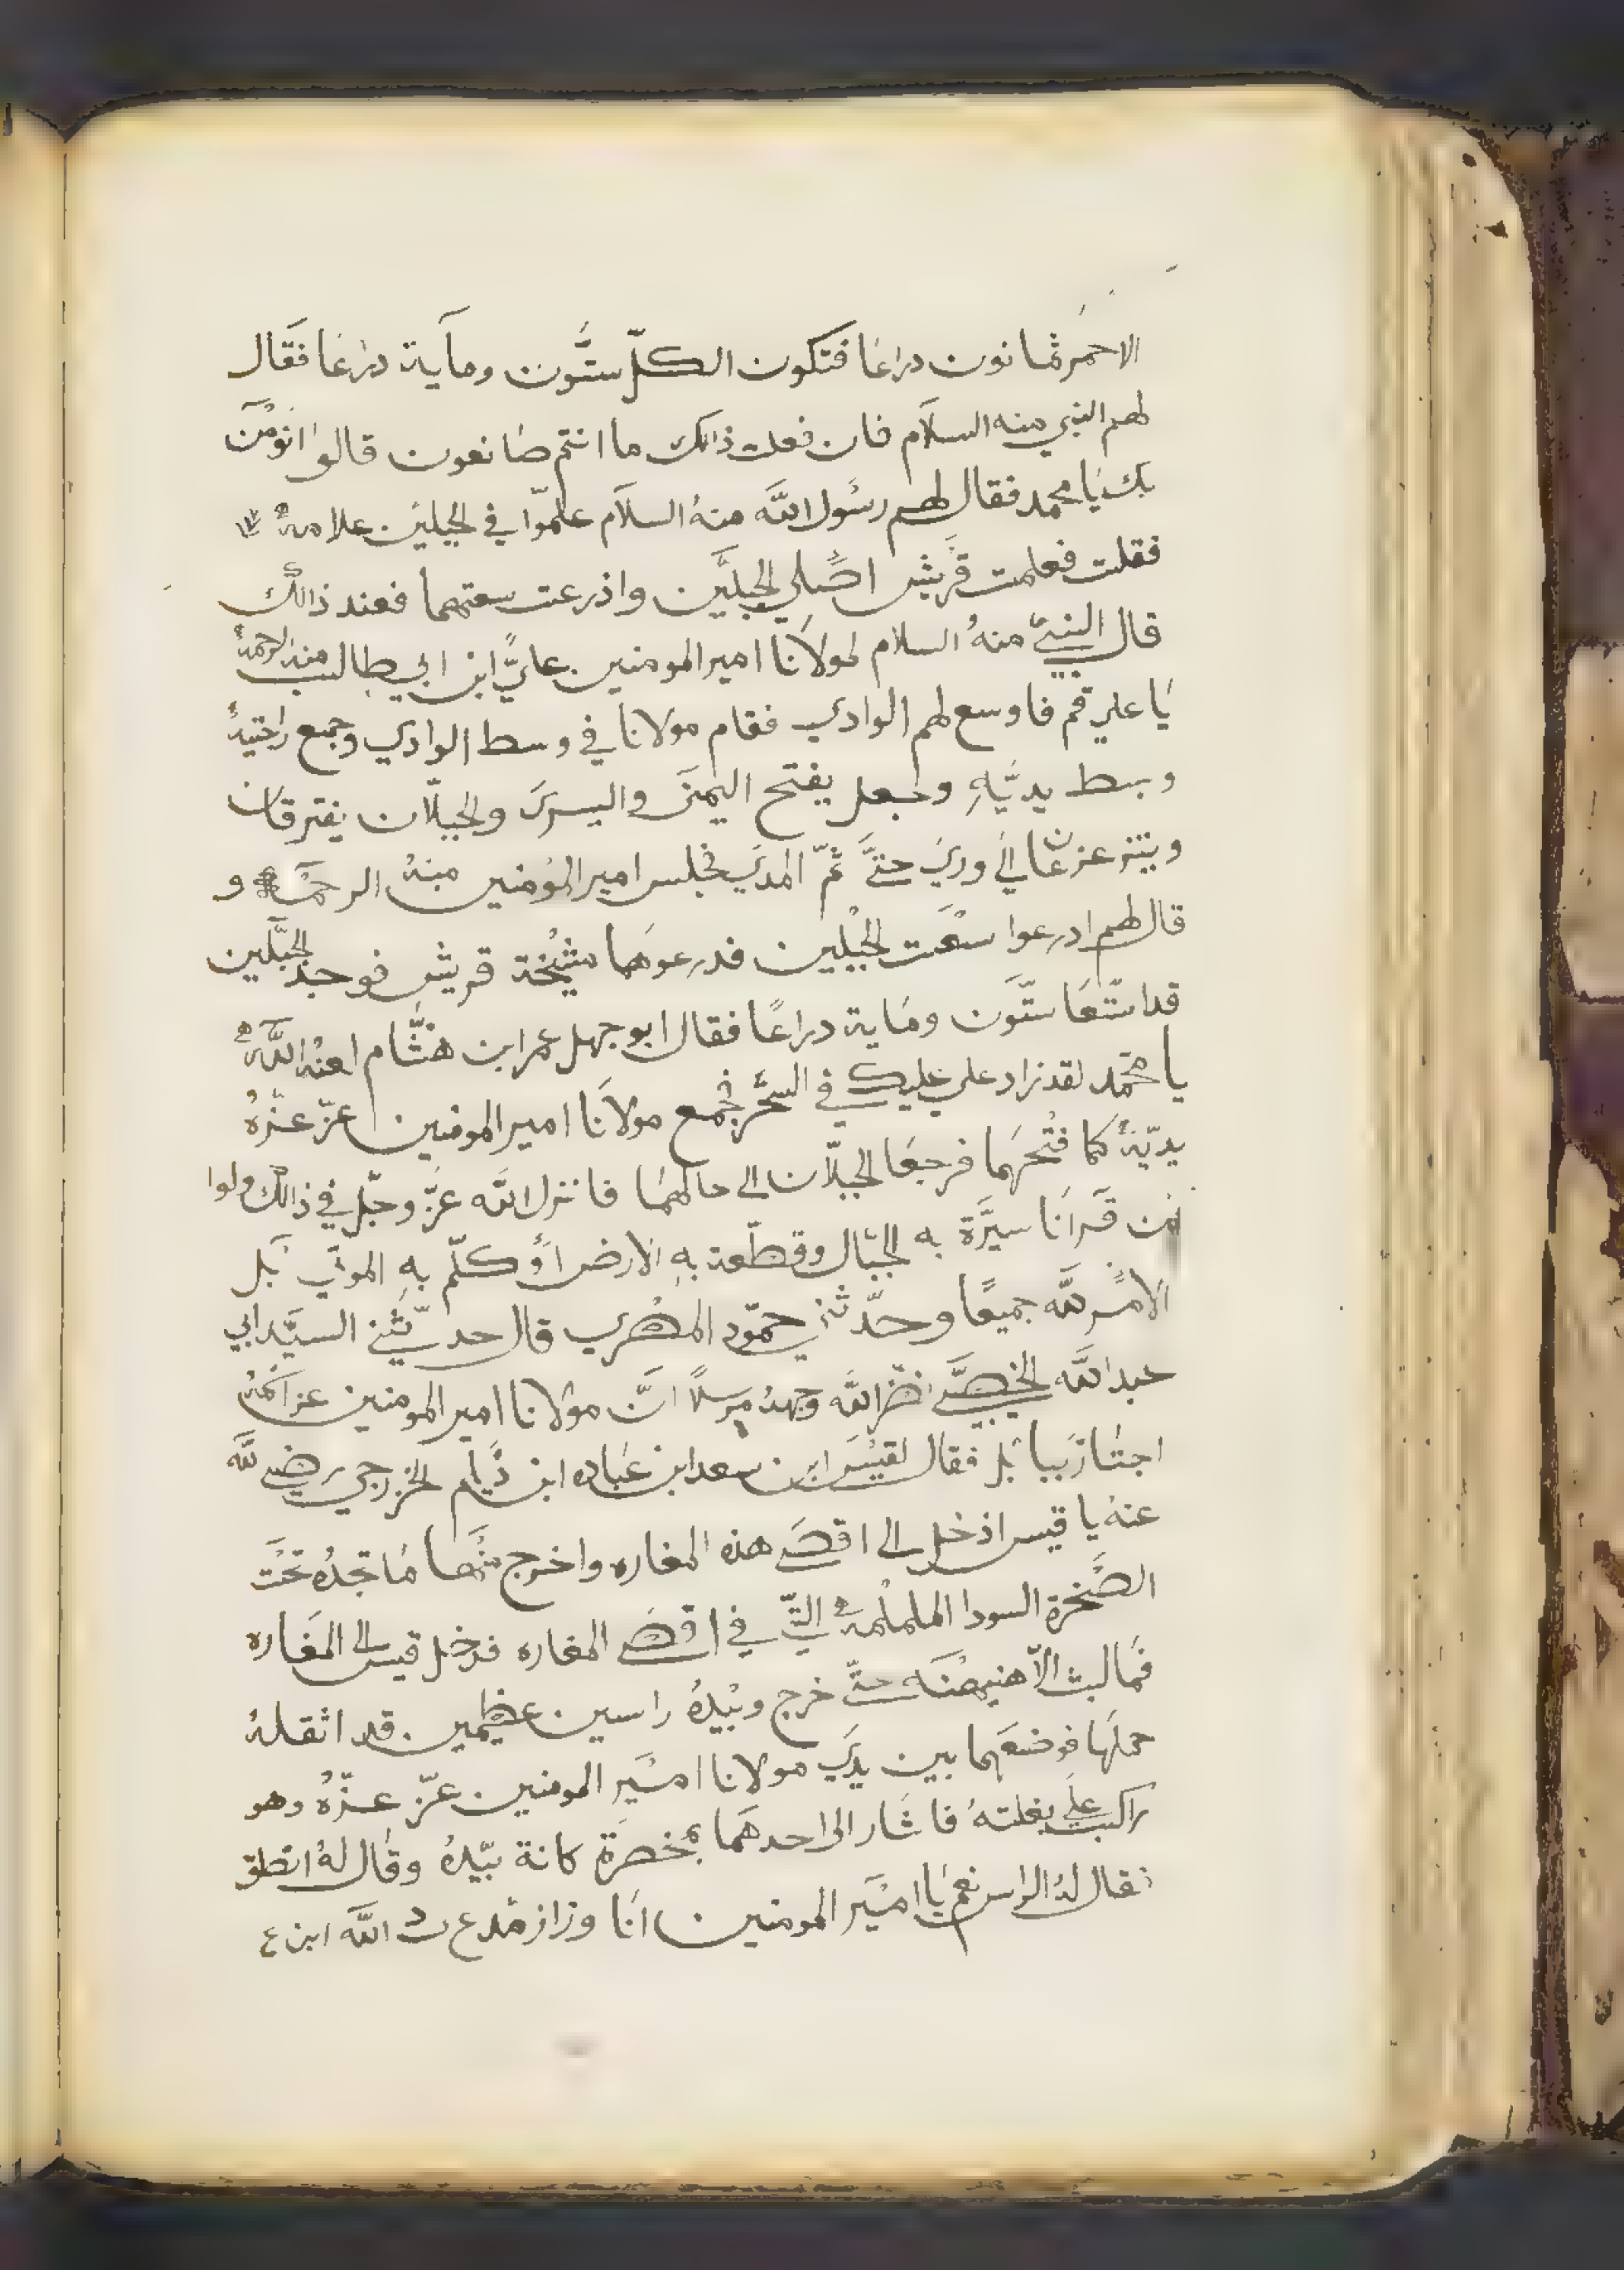 الاحمر ثمانون دراعا فتكون الكلّ ستّون ومآية دراعا فقال
لهم النبي منه السلام فان فعلت ذالك ما انتم صانعون قالوا نومن
بك يا محمد فقال لهم رسول الله منهُ السلام علّموا في الجبلين علامة
فقلت فعلمت قريش اصلي الجبلين واذرعت سعتهما فعند ذالك
قال النبيّ منهُ السلام لمولانا امير المومنين عليّ ابن ابي طالب منه الرحمة
يا علي قم فاوسع لهم الوادي فقام مولانا في وسط الوادي وجمع راحتيهُ
وبسط يديهِ وجعل يفتح اليمنى واليسرى والجبلان يفترقان
ويتزعزعان الي وري حتّى تمّ المدي فجلس امير المومنين منهُ الرحمة و
قال لهم ادرعوا سعت الجبلين فدرعوهما مشيخة قريش فوجد الجبلين
قد اتسعا ستّون وماية دراعًا فقال ابو جهل عمر ابن هشّام لعنه اللّه
يا محمّد لقد زاد علي عليك في السحر فجمع مولانا امير المومنين عزّ عزّهُ
يديّهُ كما فتحهما فرجعا الجبلان الى حالهما فانزل اللّه عزّ وجلّ في ذالك ولوا
ان قرانا سيرّة به الجبال وقطّعة بهِ الارض اوكلّم بهِ الموتي بل
الامر للّه جميعًا وحدّثني حمّود المصري قال حدّثني السيّد ابي
عبد اللّه الخصيبي نضّر اللّه وجههُ مرسلاً انّ مولانا امير المومنين عز اسمهُ
اجتاز ببابل فقال لقيس ابن سعد ابن عباده ابن دليم الخزرجي رضي للّه
عنهُ يا قيس ادخل الى اقصى هذه المغاره واخرج منها ما تجدهُ تحت
الصّخرة السودا الململمة التّي في اقصى المغاره فدخل قيس الى المغاره
فما لبث الاّ هنيهنه حتّى خرج وبيدهُ راسين عظيمين قد اثقلهُ
حملها فوضعهما بين يدي مولانا امير المومنين عزّ عزّهُ وهو
راكب على بغلتهُ فاشار الى احدهما بمخصرة كانة بيّدهُ وقال لهُ انطق
فقال لهُ الراس نعم يا امير المومنين انا اللّه ابن